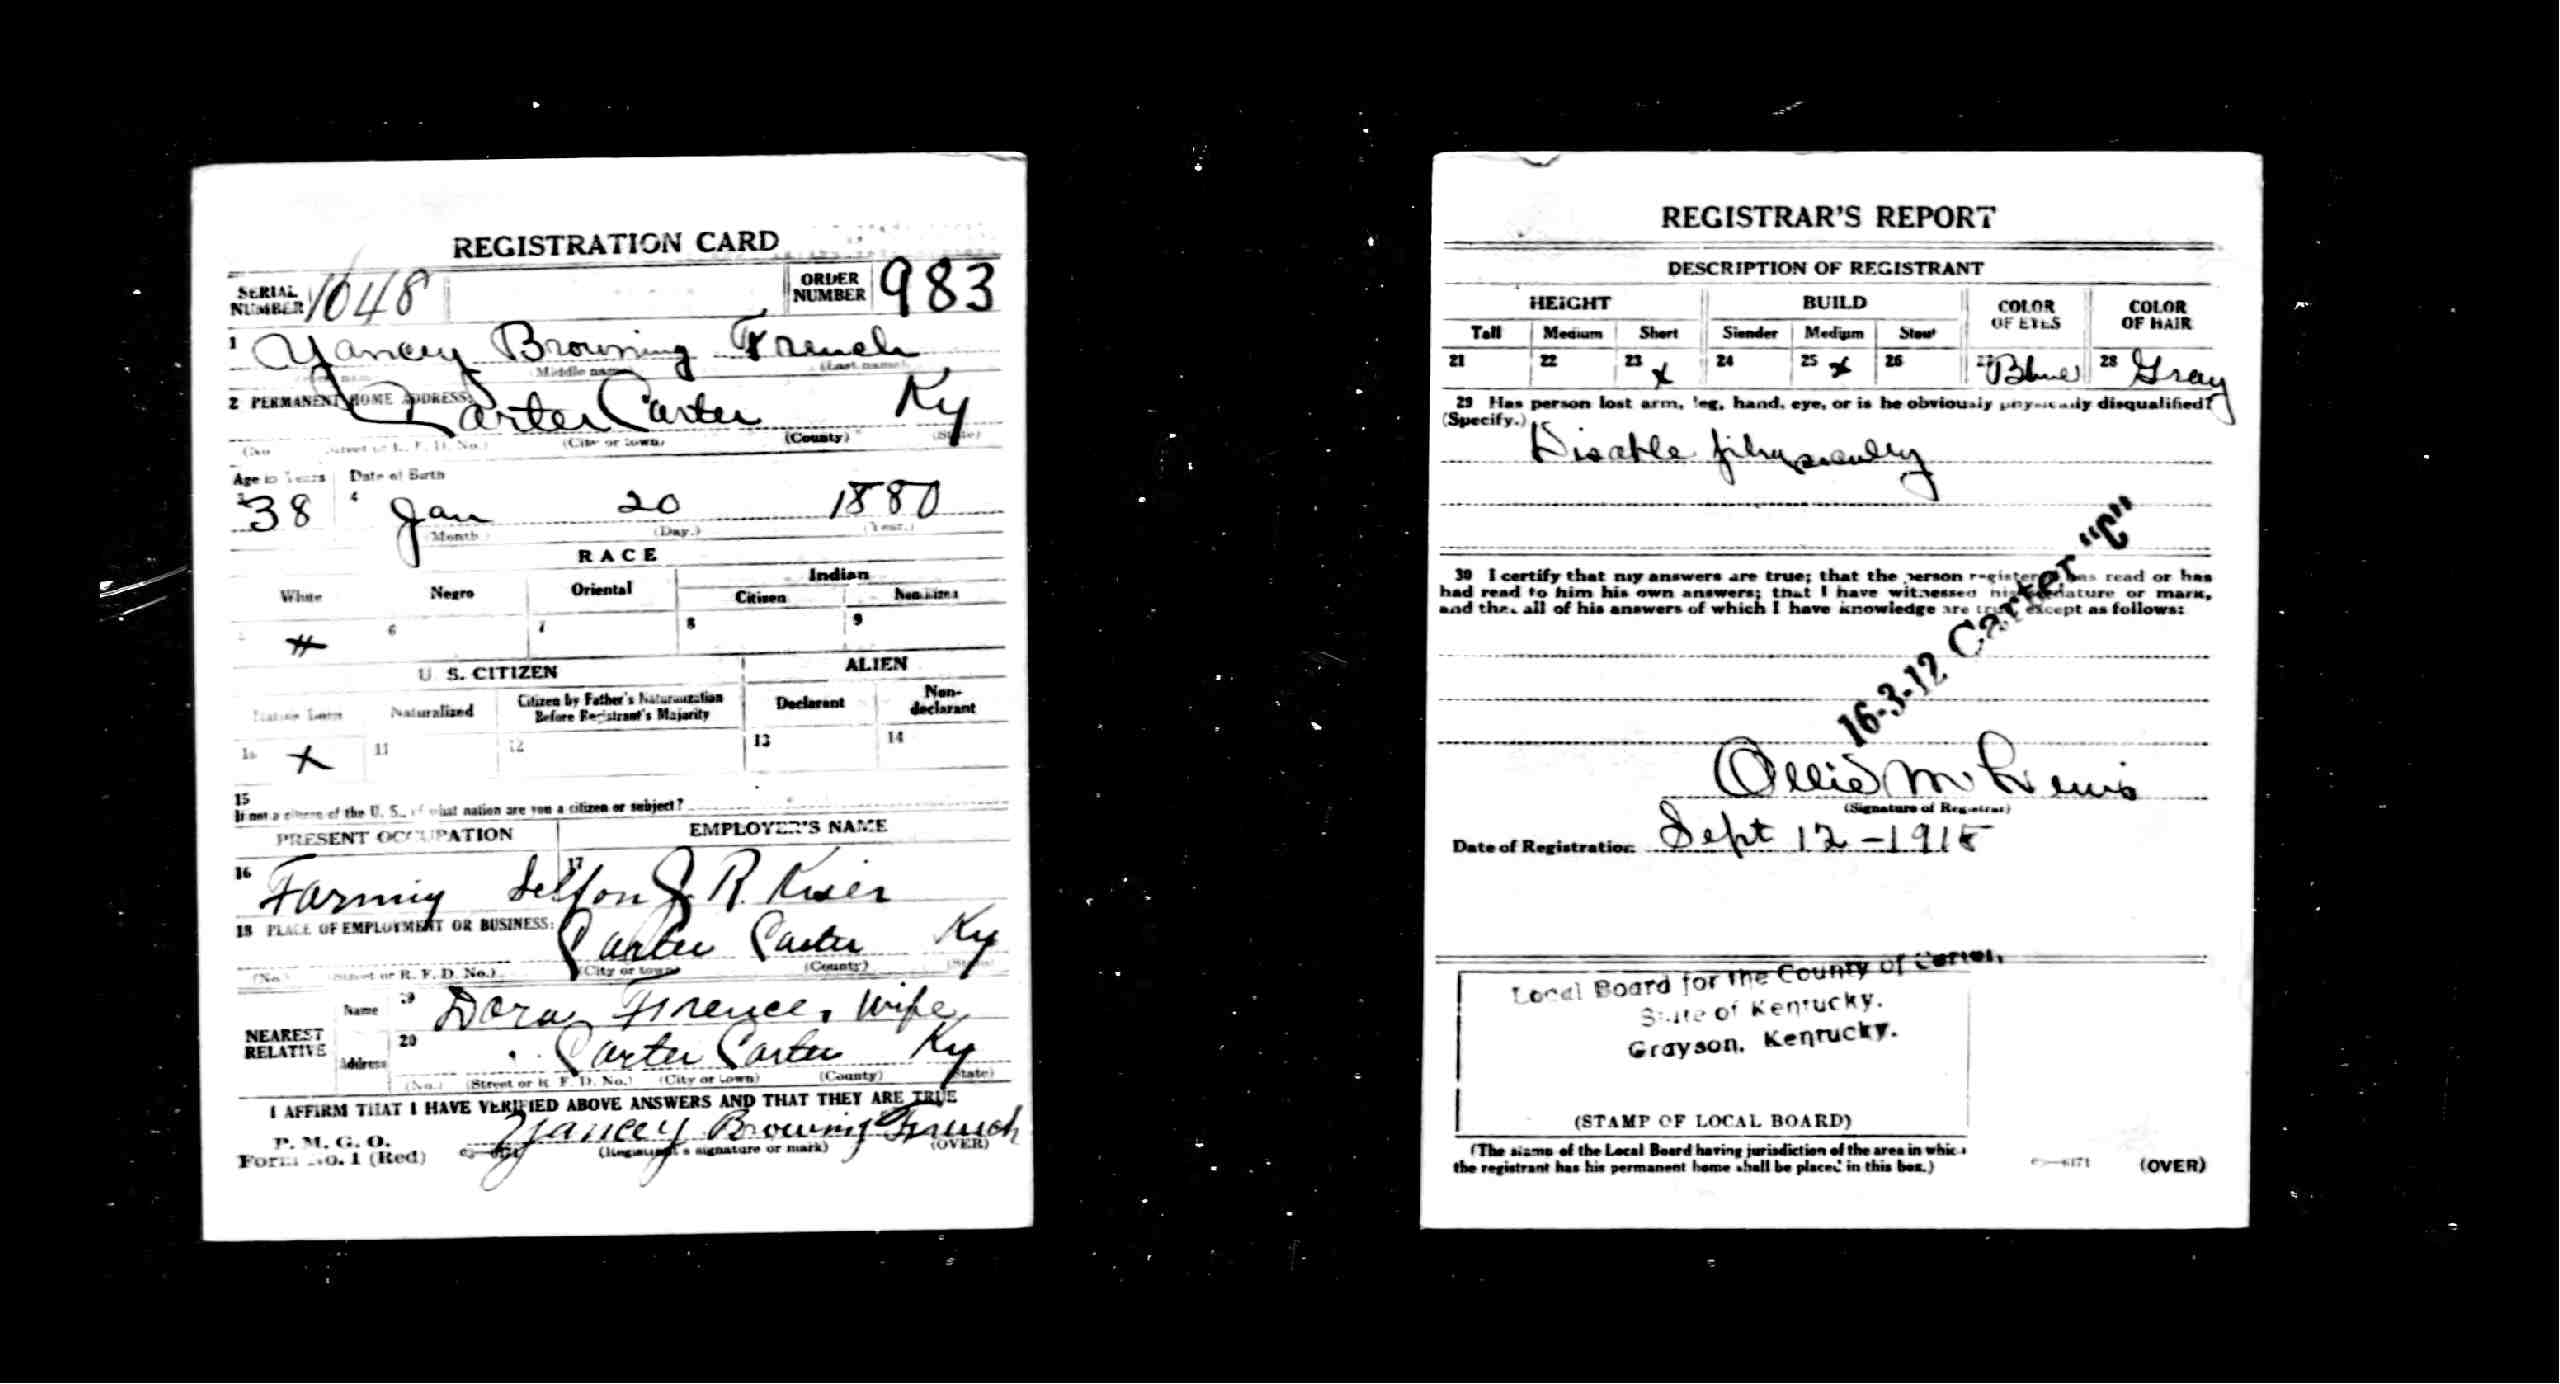 REGISTRATION CARD
SERIAL NUMBER 1648 ORDER NUMBER 983
1 Yancey Browning French
(Middle name) (Last name)
2 PERMANENT HOME ADDRESS:
Carter Carter Ky
(No.) (Street or R. F. D. No.) (City or town) (County) (State)
Age in Years Date of Birth
3 38 4 Jan 20 1880
(Month) (Day.) (Year.)
RACE
White Negro Oriental Indian
Citizen Noncitizen
5 X 6 7 8 9
U. S. CITIZEN ALIEN
Native Born Naturalized Citizen by Father's Naturalization Before Registrant's Majority Declarant Non-declarant
10 X 11 12 13 14
15
If not a citizen of the U. S., of what nation are you a citizen or subject?
PRESENT OCCUPATION EMPLOYER'S NAME
16 Farming 17 Self on J. R. Kiser
18 PLACE OF EMPLOYMENT OR BUSINESS:
Carter Carter Ky
(No.) (Street or R. F. D. No.) (City or town) (County) (State)
NEAREST RELATIVE
Name 19 Dora Firence, Wife
Address 20 Carter Carter Ky
(No.) (Street or R. F. D. No.) (City or town) (County) (State)
I AFFIRM THAT I HAVE VERIFIED ABOVE ANSWERS AND THAT THEY ARE TRUE
P. M. G. O.
Form No. 1 (Red) Yancey Browning French
(Registrant's signature or mark) (OVER)
REGISTRAR'S REPORT
DESCRIPTION OF REGISTRANT
HEIGHT BUILD COLOR OF EYES COLOR OF HAIR
Tall Medium Short Slender Medium Stout
21 22 23 X 24 25 X 26 27 Blue 28 Gray
29 Has person lost arm, leg, hand, eye, or is he obviously physically disqualified?
(Specify.)
Disable
30 I certify that my answers are true; that the person registered has read or has
had read to him his own answers; that I have witnessed his signature or mark,
and that all of his answers of which I have knowledge are true, except as follows:
16-3-12 Carter "C"
Ollie M Lewis
(Signature of Registrar)
Date of Registration Sept 12-1918
Local Board for the County of Carter,
State of Kentucky.
Grayson, Kentucky.
(STAMP OF LOCAL BOARD)
(The stamp of the Local Board having jurisdiction of the area in which
the registrant has his permanent home shall be placed in this box.)
(OVER)